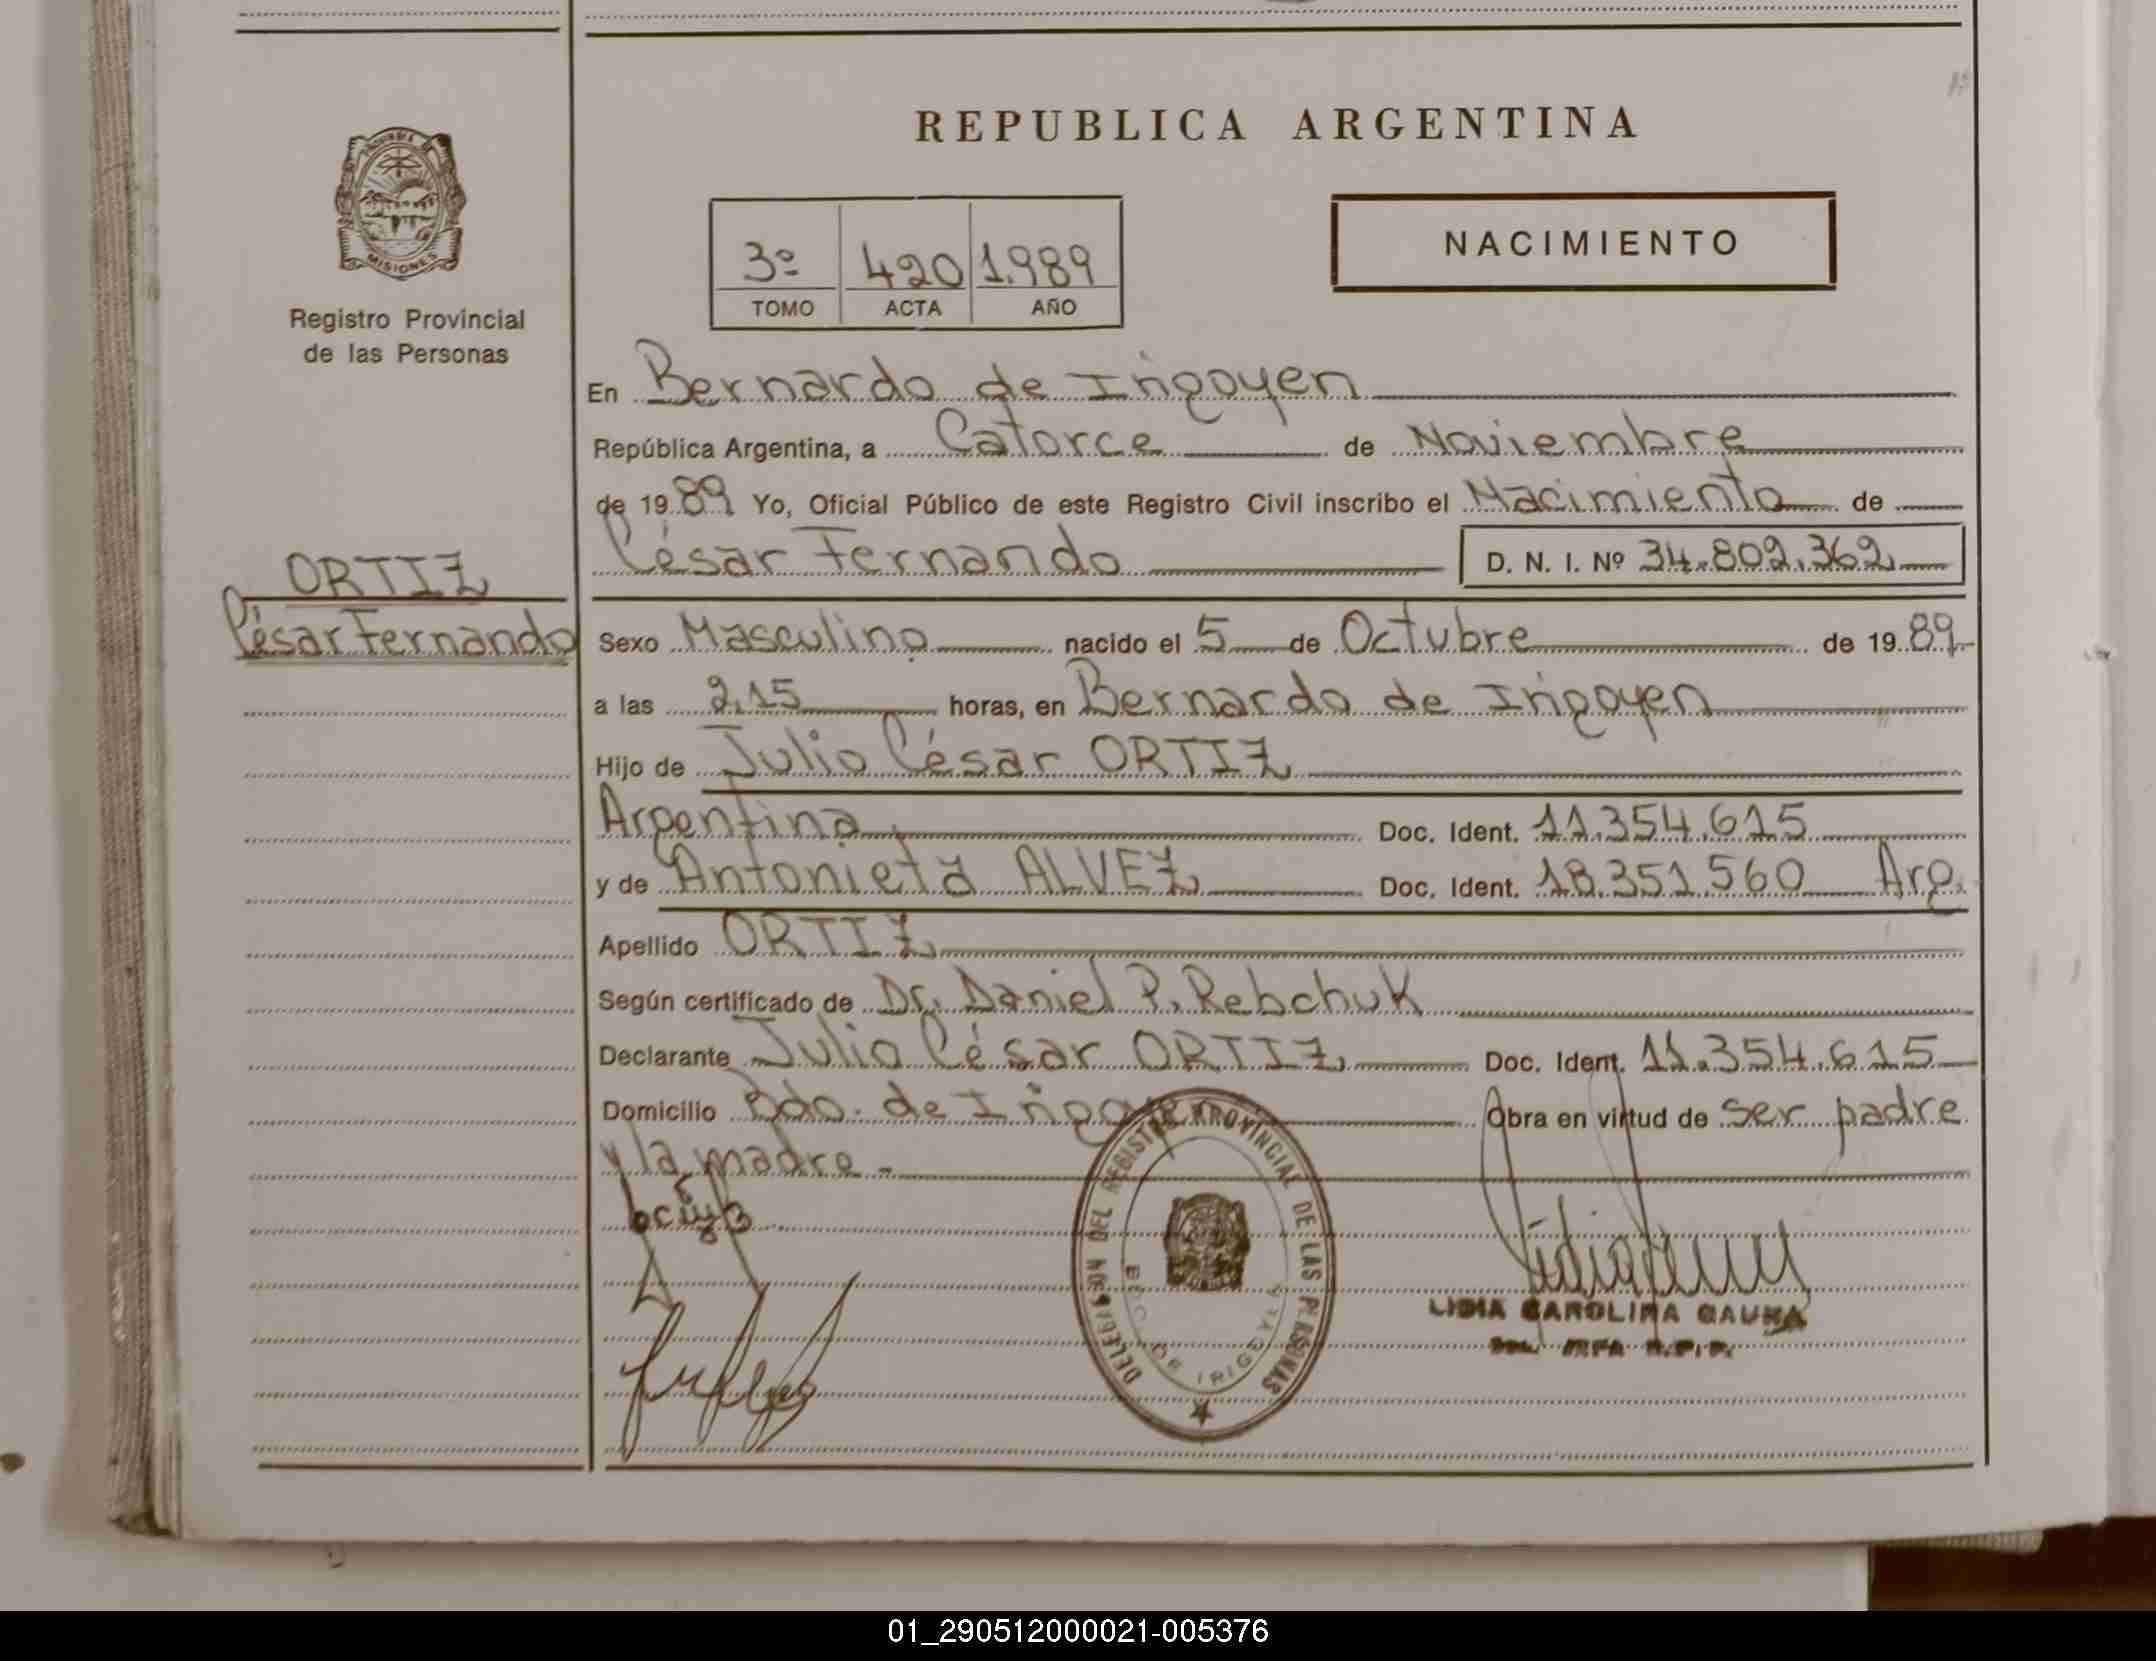 REPUBLICA ARGENTINA
PROVINCIA
MISIONES
Registro Provincial
de las Personas
3º 420 1.989
TOMO ACTA AÑO
NACIMIENTO
En Bernardo de Irigoyen
República Argentina, a Catorce de Noviembre
de 1989 Yo, Oficial Público de este Registro Civil inscribo el Nacimiento de
César Fernando D. N. I. Nº 34.802.362
ORTIZ
César Fernando
Sexo Masculino nacido el 5 de Octubre de 1989
a las 2,15 horas, en Bernardo de Irigoyen
Hijo de Julio César ORTIZ
Argentina Doc. Ident. 11.354.615
y de Antonieta ALVEZ Doc. Ident. 18.351.560 Arg.
Apellido ORTIZ
Según certificado de Dr. Daniel P. Rebchuk
Declarante Julio César ORTIZ Doc. Ident. 11.354.615
Domicilio Bdo. de Irigoyen Obra en virtud de ser padre
y la madre.-
DELEGACION DEL REGISTRO PROVINCIAL DE LAS PERSONAS
BDO. DE IRIGOYEN
LIDIA CAROLINA GAUNA
R.P.P.
01_290512000021-005376